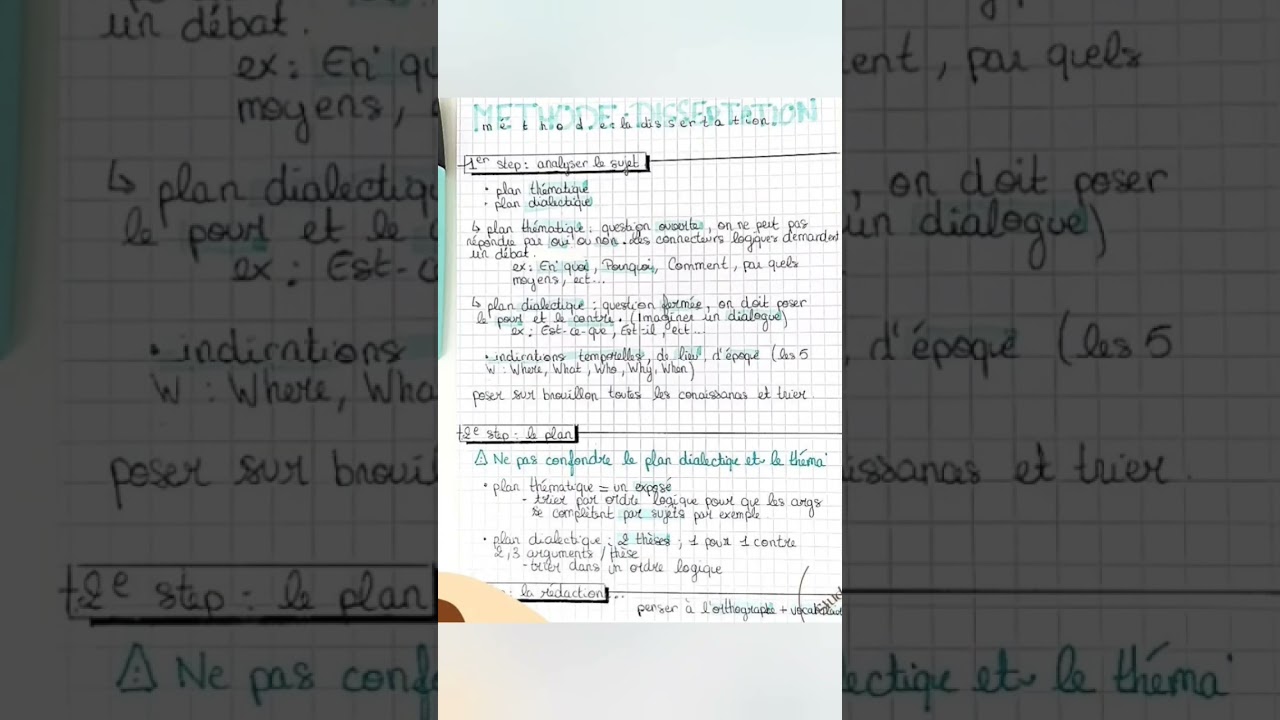 METHODE DISSERTATION
méthode: la dissertation
1er step: analyser le sujet
• plan thématique
• plan dialectique
↳ plan thématique: question ouverte, on ne peut pas
répondre par oui ou non. des connecteurs logiques demandent
un débat.
ex: En quoi, Pourquoi, Comment, par quels
moyens, ect...
↳ plan dialectique: question fermée, on doit poser
le pour et le contre. (Imaginer un dialogue)
ex: Est-ce-que, Est-il, ect...
• indications temporelles, de lieu, d'époque (les 5
W: Where, What, Who, Why, When)
poser sur brouillon toutes les conaissanas et trier.
2e step: le plan
⚠ Ne pas confondre le plan dialectique et le théma
• plan thématique = un exposé
- trier par ordre logique pour que les args
se complètent par sujets par exemple
• plan dialectique: 2 thèses; 1 pour 1 contre
2,3 arguments/thèse
- trier dans un ordre logique
: la rédaction...
penser à l'orthographe + vocabulaire